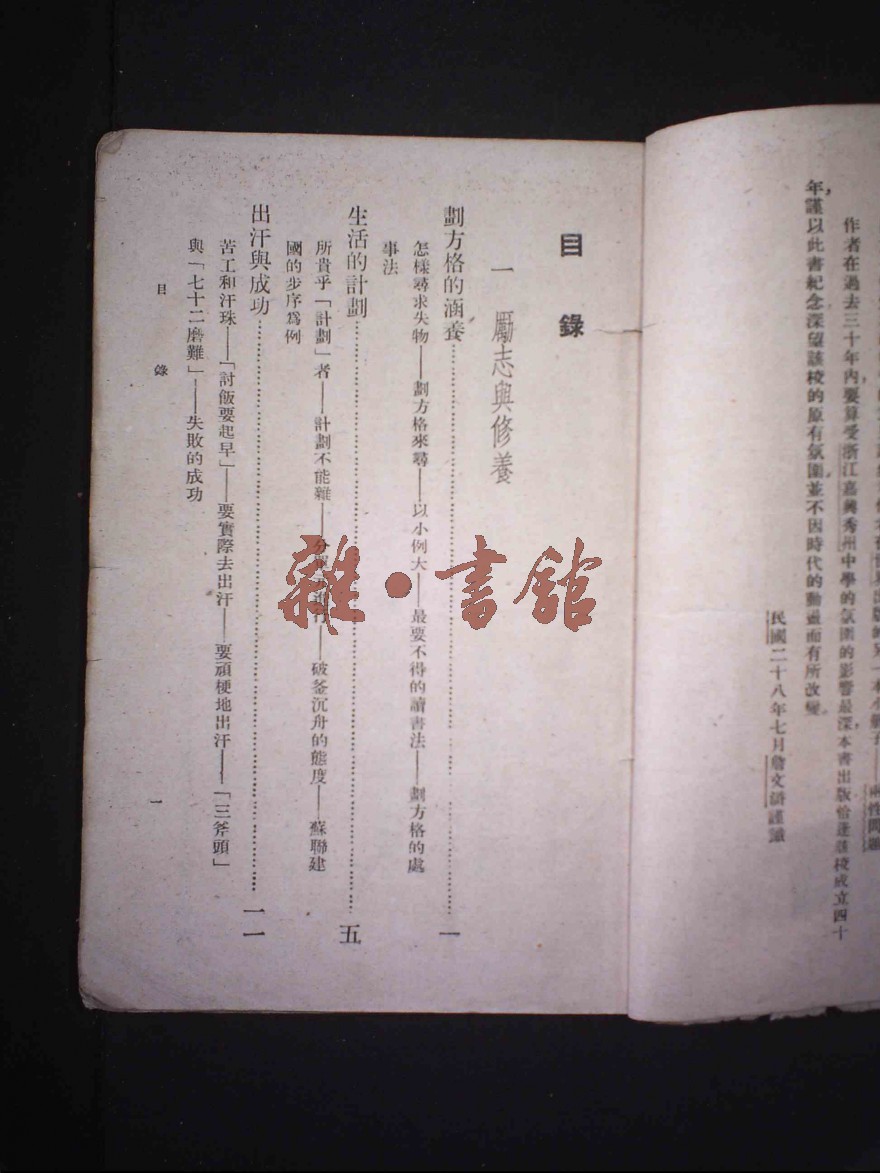 作者在過去三十年內,要算受浙江嘉興秀州中學的氛圍的影響最深,本書出版恰逢該校成立四十
年,謹以此書紀念,深望該校的原有氛圍並不因時代的動盪而有所改變。
民國二十八年七月詹文滸謹識
目錄
一 勵志與修養
劃方格的涵養……一
怎樣尋求失物——劃方格來尋——以小例大——最要不得的讀書法——劃方格的處
事法
生活的計劃……五
所貴乎「計劃」者——計劃不能雜——分單元進行——破釜沉舟的態度——蘇聯建
國的步序爲例
出汗與成功……一一
苦工和汗珠——「討飯要起早」——要實際去出汗——要頑梗地出汗——「三斧頭」
與「七十二磨難」——失敗的成功
目錄
一
雜·書館